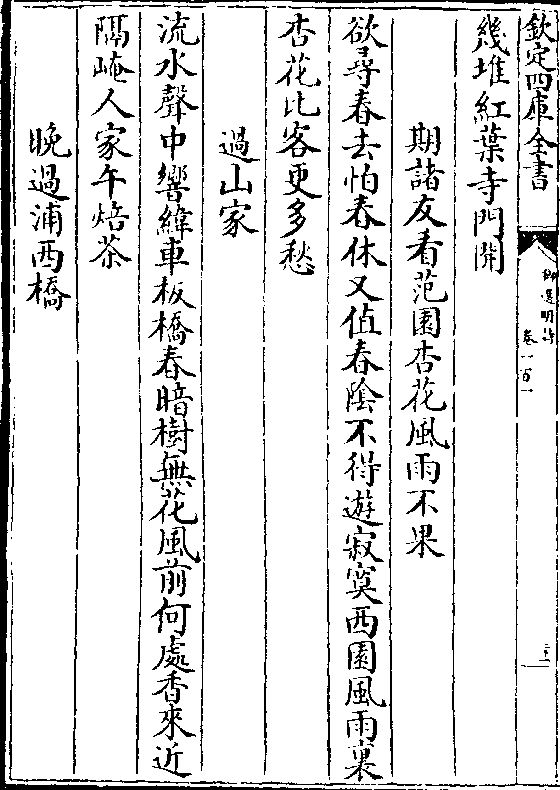 欽定四庫全書
御選明詩
卷一百一
幾堆紅葉寺門開
期諸友看范園杏花風雨不果
欲尋春去怕春休又值春陰不得遊寂寞西園風雨裏
杏花比客更多愁
過山家
流水聲中響緯車板橋春暗樹無花風前何處香來近
隔崦人家午焙茶
晚過浦西橋